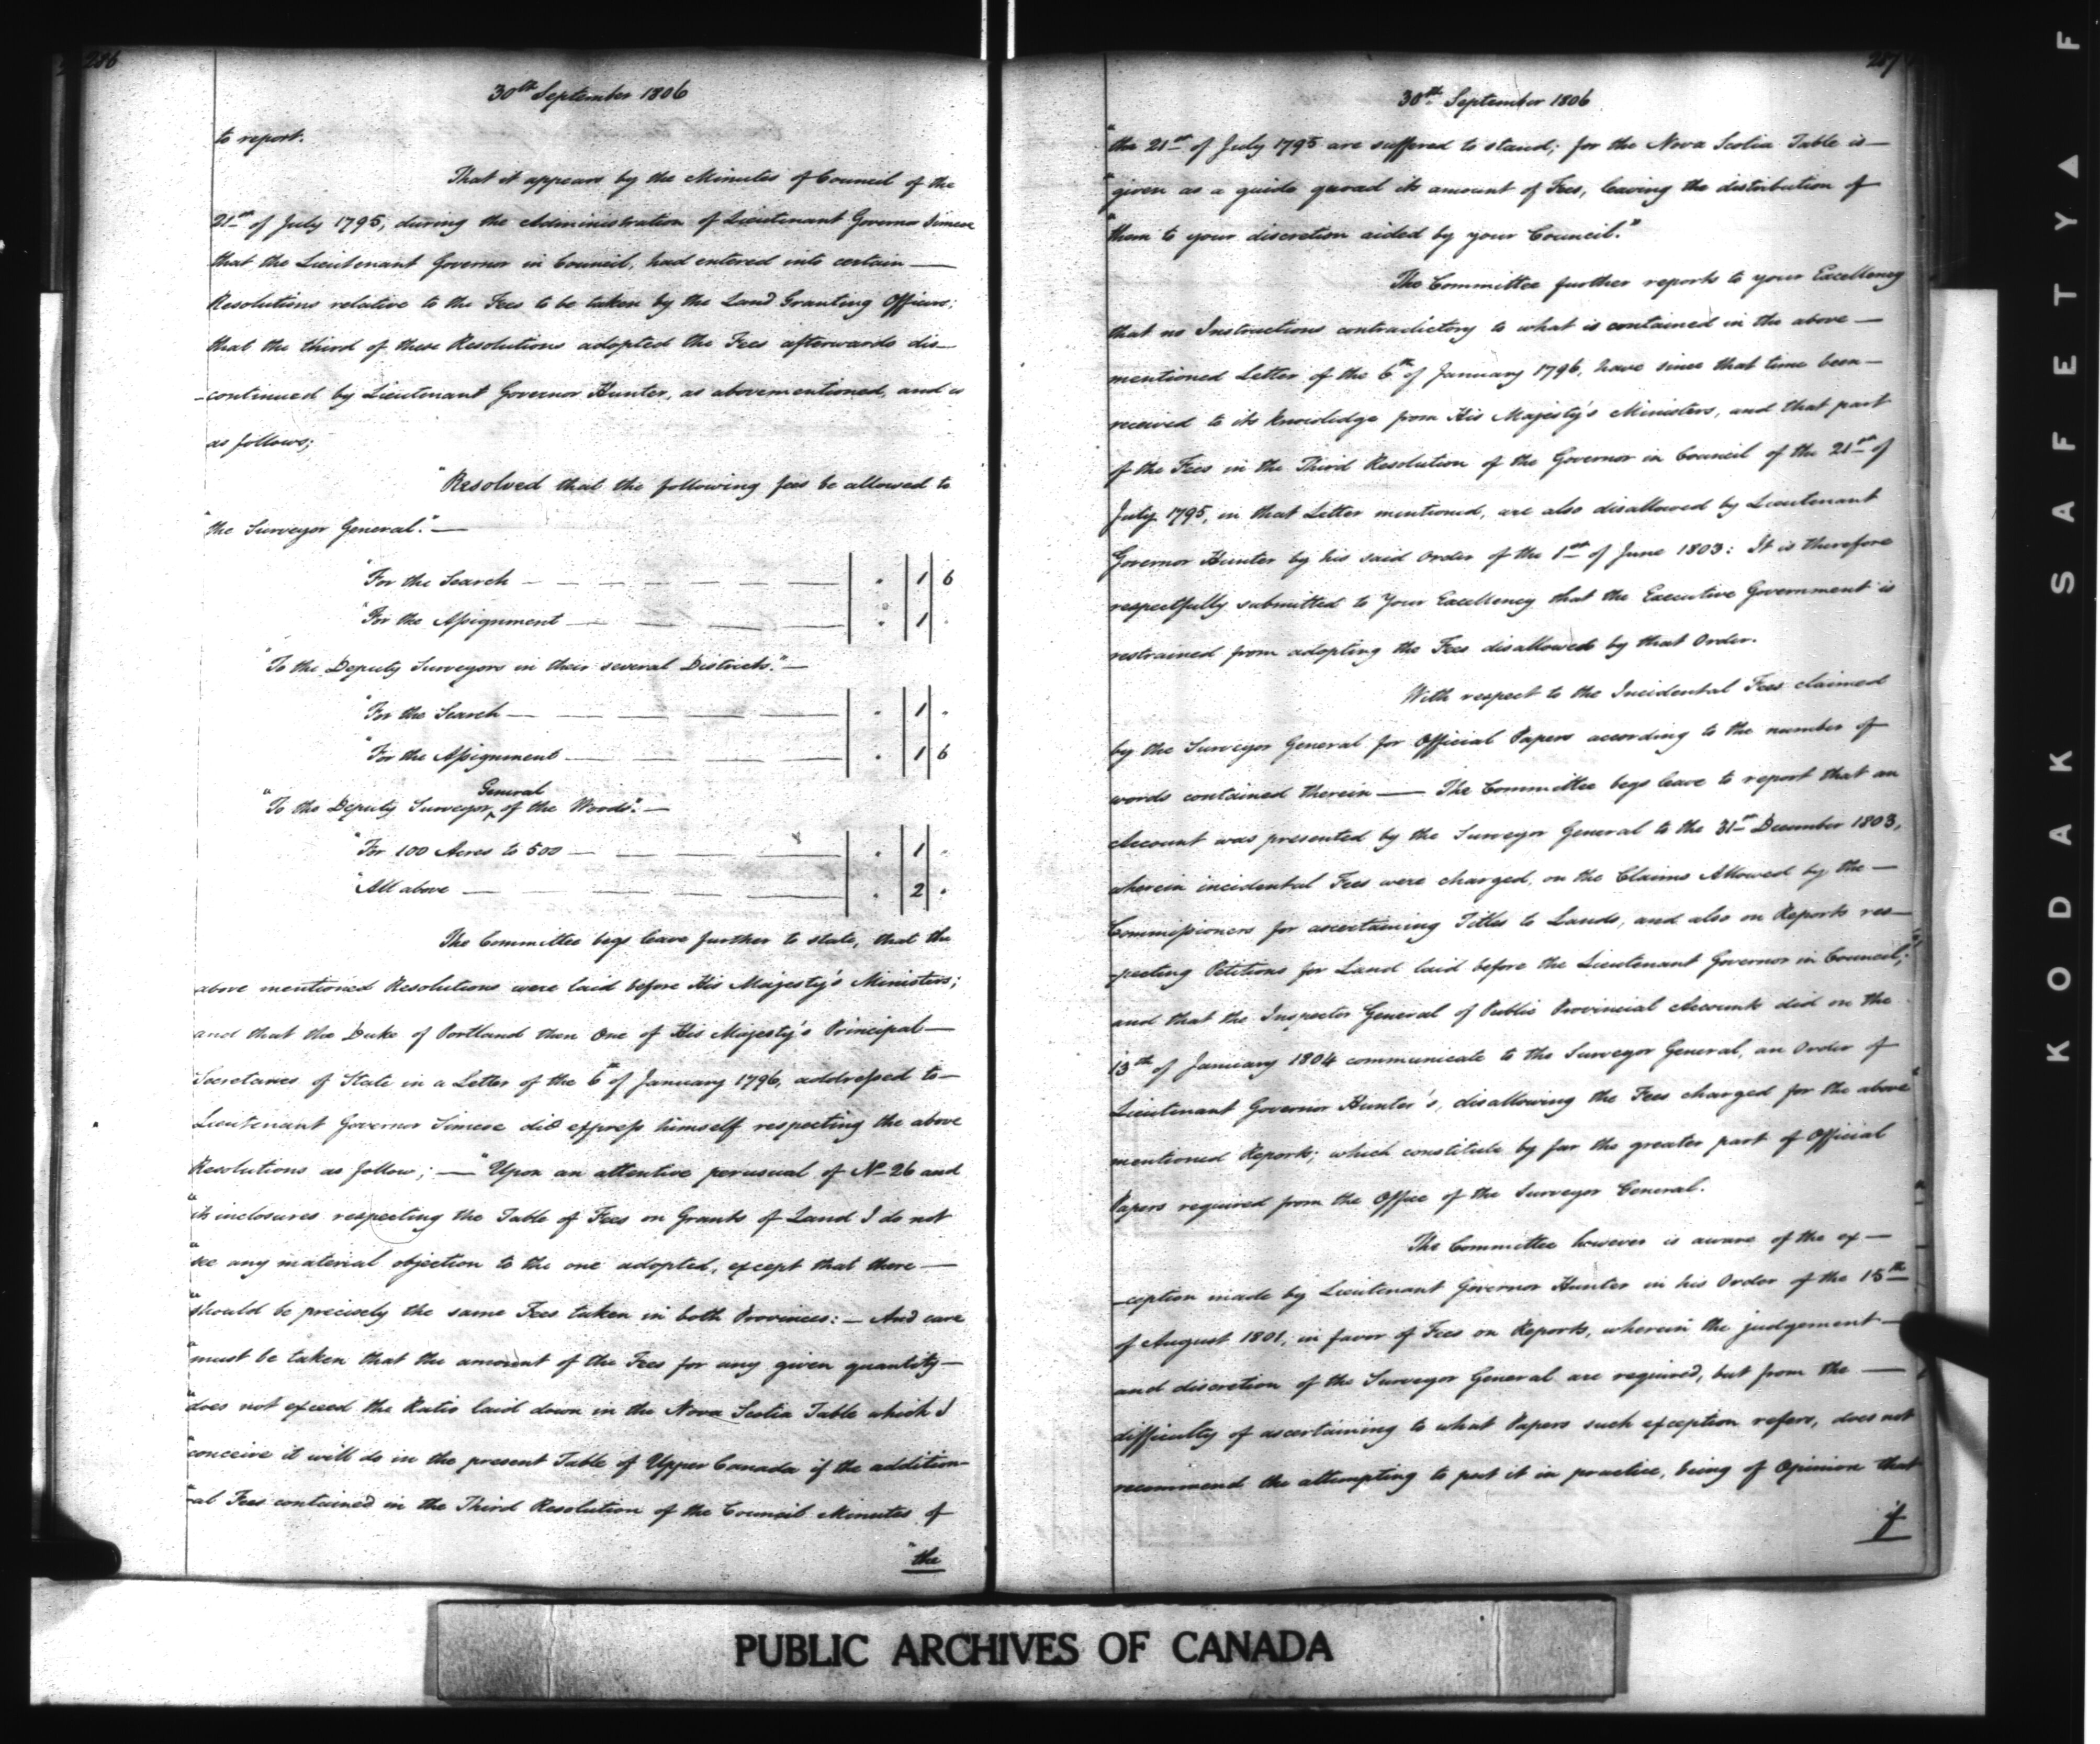 286
30th September 1806
to report.
That it appears by the Minutes of Council of the
21st of July 1795, during the Administration of Lieutenant Governor Simcoe
that the Lieutenant Governor in Council, had entered into certain —
Resolutions relative to the Fees to be taken by the Land Granting Officers;
that the third of these Resolutions adopted the Fees afterwards dis—
-continued by Lieutenant Governor Hunter, as abovementioned, and is
as follows;
"Resolved that the following fees be allowed to
"the Surveyor General." —
"For the Search — — — — — — — | . | 1 | 6
"For the Assignment — — — — — | . | 1 | .
"To the Deputy Surveyors in their several Districts." —
"For the Search — — — — — — | . | 1 | .
"For the Assignment — — — — — | . | 1 | 6
"To the Deputy Surveyor General of the Woods". —
"For 100 Acres to 500 — — — — — | . | 1 | .
"All above — — — — — — | . | 2 | .
The Committee begs leave further to state, that the
above mentioned Resolutions were laid before His Majesty's Ministers;
and that the Duke of Portland then One of His Majesty's Principal —
Secretaries of State in a Letter of the 6th of January 1796, addressed to —
Lieutenant Governor Simcoe did express himself respecting the above
Resolutions as follow; — "Upon an attentive perusual of No 26 and
"its inclosures respecting the Table of Fees on Grants of Land I do not
"see any material objection to the one adopted, except that there —
"should be precisely the same Fees taken in both Provinces: — And care
"must be taken that the amount of the Fees for any given quantity —
"does not exceed the Ratio laid down in the Nova Scotia Table which I
"conceive it will do in the present Table of Upper Canada if the addition-
"-al Fees contained in the Third Resolution of the Council Minutes of
"the
287
30th September 1806
"the 21st of July 1795 are suffered to stand; for the Nova Scotia Table is —
"given as a guide quoad its amount of Fees, leaving the distribution of
"them to your discretion aided by your Council."
The Committee further reports to your Excellency
that no Instructions contradictory to what is contained in the above —
mentioned Letter of the 6th of January 1796, have since that time been —
received to its knowledge from His Majesty's Ministers, and that part
of the Fees in the Third Resolution of the Governor in Council of the 21st of
July 1795, in that Letter mentioned, are also disallowed by Lieutenant
Governor Hunter by his said Order of the 1st of June 1803: It is therefore
respectfully submitted to Your Excellency that the Executive Government is
restrained from adopting the Fees disallowed by that Order.
With respect to the Incidental Fees claimed
by the Surveyor General for Official Papers according to the number of
words contained therein — The Committee begs leave to report that an
Account was presented by the Surveyor General to the 31st December 1803,
wherein incidental Fees were charged, on the Claims Allowed by the —
Commissioners for ascertaining Titles to Lands, and also on Reports res—
-pecting Petitions for Land laid before the Lieutenant Governor in Council;
and that the Inspector General of Public Provincial Accounts did on the
13th of January 1804 communicate to the Surveyor General, an Order of
Lieutenant Governor Hunter's, disallowing the Fees charged for the above
mentioned Reports; which constitute by far the greater part of Official
Papers required from the Office of the Surveyor General.
The Committee however is aware of the ex —
—ception made by Lieutenant Governor Hunter in his Order of the 15th
of August 1801, in favor of Fees on Reports, wherein the judgement —
and discretion of the Surveyor General are required, but from the —
difficulty of ascertaining to what Papers such exception refers, does not
recommend the attempting to put it in practice, being of Opinion that
if
PUBLIC ARCHIVES OF CANADA
KODAK SAFETY F